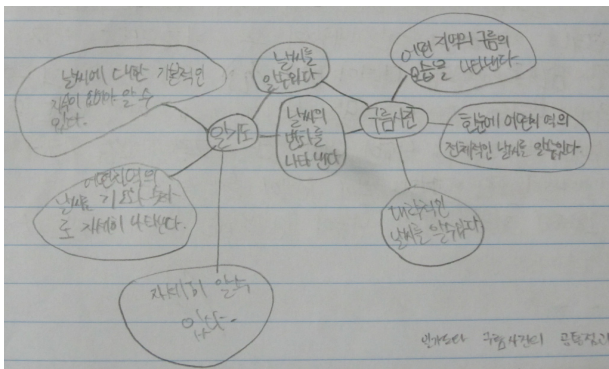 날씨에 대한 기본적인
지식이 있어야 알 수
있다.
날씨를
알 수 있다
어떤 지역의 구름의
모습을 나타낸다.
일기도
날씨의
변화를
나타낸다
구름사진
한눈에 어떤 지역의
전체적인 날씨를 알 수 있다.
어떤 지역의
날씨를 기호와 숫자
로 자세히 나타낸다.
대략적인
날씨를 알 수 있다
자세히 알 수
있다.
일기도와 구름사진의 공통점과